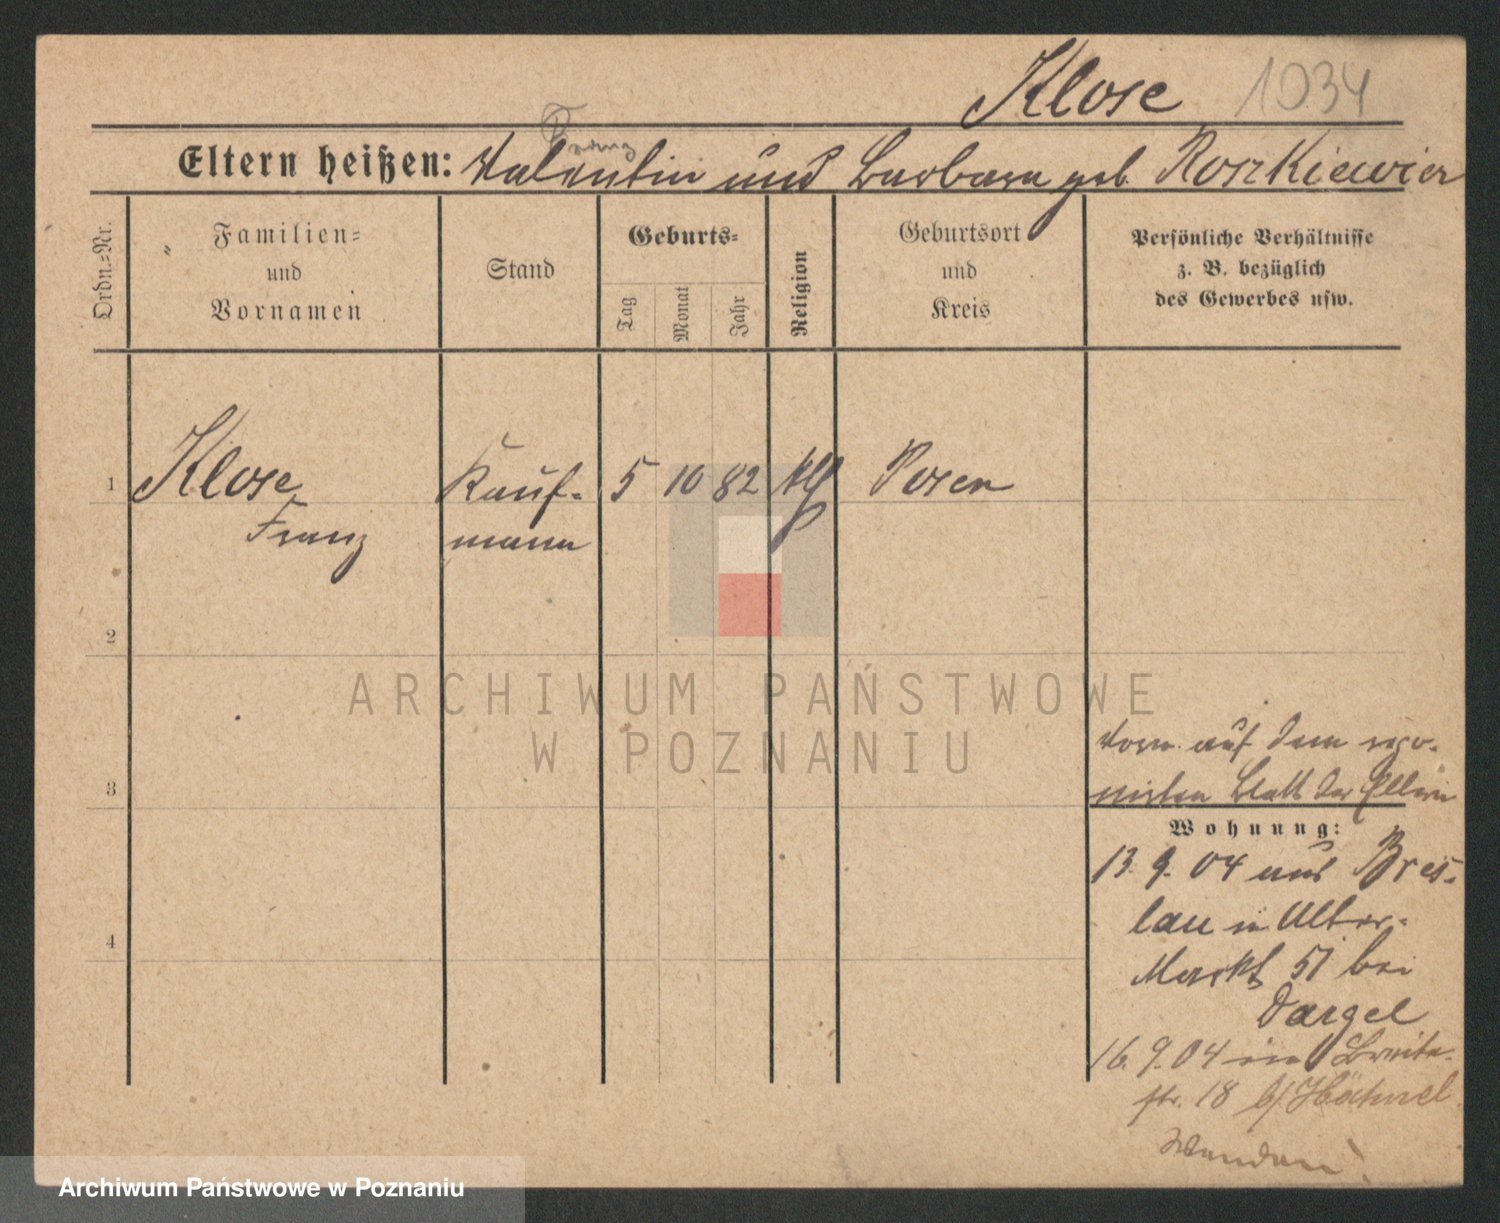 Klose 1034
Franz
Eltern heißen: Valentin und Barbara geb. Roszkiewicz
Ordn.=Nr.
Familien=
und
Vornamen
Stand
Geburts=
Tag
Monat
Jahr
Religion
Geburtsort
und
Kreis
Persönliche Verhältnisse
z. B. bezüglich
des Gewerbes usw.
1 Klose Kauf= 5 10 82 kth Posen
Franz mann
2
ARCHIWUM PAŃSTWOWE
W POZNANIU
vorn. auf dem
3
Blatt der Eltern
Wohnung:
13. 9. 04 aus Bres=
lau in Alter=
4
Markt 51 bei
Dargel
16. 9. 04 Breite=
str. 18 b/ Hähnel
Wenden!
Archiwum Państwowe w Poznaniu